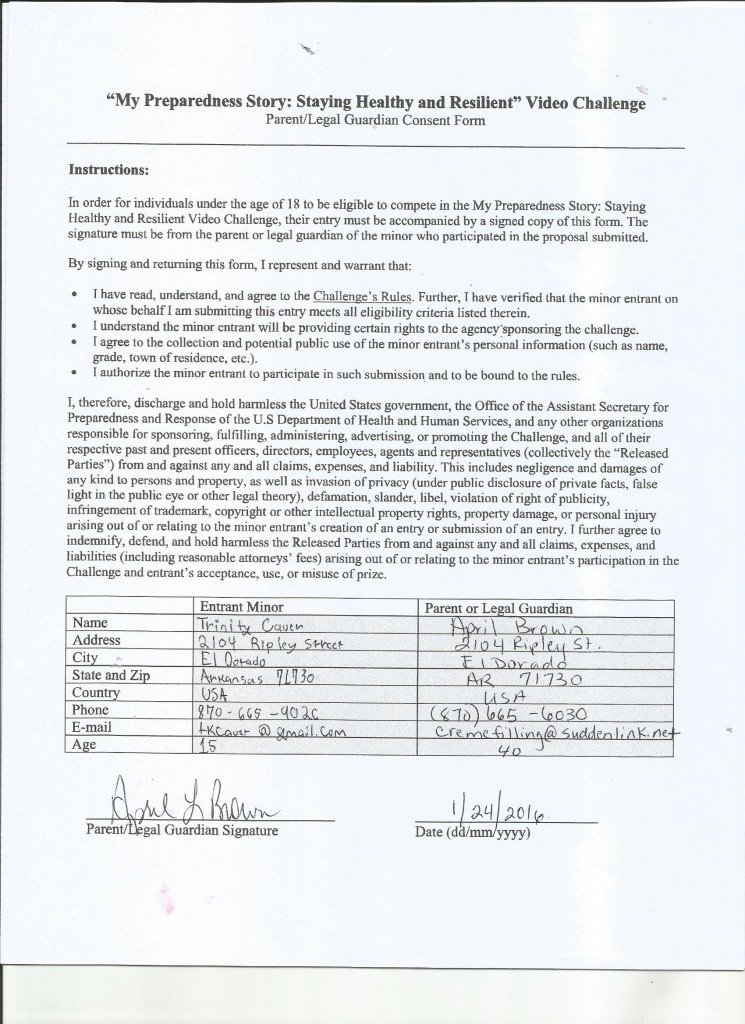 “My Preparedness Story: Staying Healthy and Resilient” Video Challenge
Parent/Legal Guardian Consent Form
Instructions:
In order for individuals under the age of 18 to be eligible to compete in the My Preparedness Story: Staying
Healthy and Resilient Video Challenge, their entry must be accompanied by a signed copy of this form. The
signature must be from the parent or legal guardian of the minor who participated in the proposal submitted.
By signing and returning this form, I represent and warrant that:
• I have read, understand, and agree to the Challenge's Rules. Further, I have verified that the minor entrant on
whose behalf I am submitting this entry meets all eligibility criteria listed therein.
• I understand the minor entrant will be providing certain rights to the agency sponsoring the challenge.
• I agree to the collection and potential public use of the minor entrant's personal information (such as name,
grade, town of residence, etc.).
• I authorize the minor entrant to participate in such submission and to be bound to the rules.
I, therefore, discharge and hold harmless the United States government, the Office of the Assistant Secretary for
Preparedness and Response of the U.S Department of Health and Human Services, and any other organizations
responsible for sponsoring, fulfilling, administering, advertising, or promoting the Challenge, and all of their
respective past and present officers, directors, employees, agents and representatives (collectively the “Released
Parties”) from and against any and all claims, expenses, and liability. This includes negligence and damages of
any kind to persons and property, as well as invasion of privacy (under public disclosure of private facts, false
light in the public eye or other legal theory), defamation, slander, libel, violation of right of publicity,
infringement of trademark, copyright or other intellectual property rights, property damage, or personal injury
arising out of or relating to the minor entrant's creation of an entry or submission of an entry. I further agree to
indemnify, defend, and hold harmless the Released Parties from and against any and all claims, expenses, and
liabilities (including reasonable attorneys' fees) arising out of or relating to the minor entrant's participation in the
Challenge and entrant's acceptance, use, or misuse of prize.
Entrant Minor Parent or Legal Guardian
Name Trinity April Brown
Address 2104 Ripley Street 2104 Ripley St.
City El Dorado El Dorado
State and Zip Arkansas 71730 AR 71730
Country USA USA
Phone 870-665- (870) 665-6030
E-mail @gmail.com cremefilling@suddenlink.net
Age 15 40
April L Brown 1/24/2016
Parent/Legal Guardian Signature Date (dd/mm/yyyy)